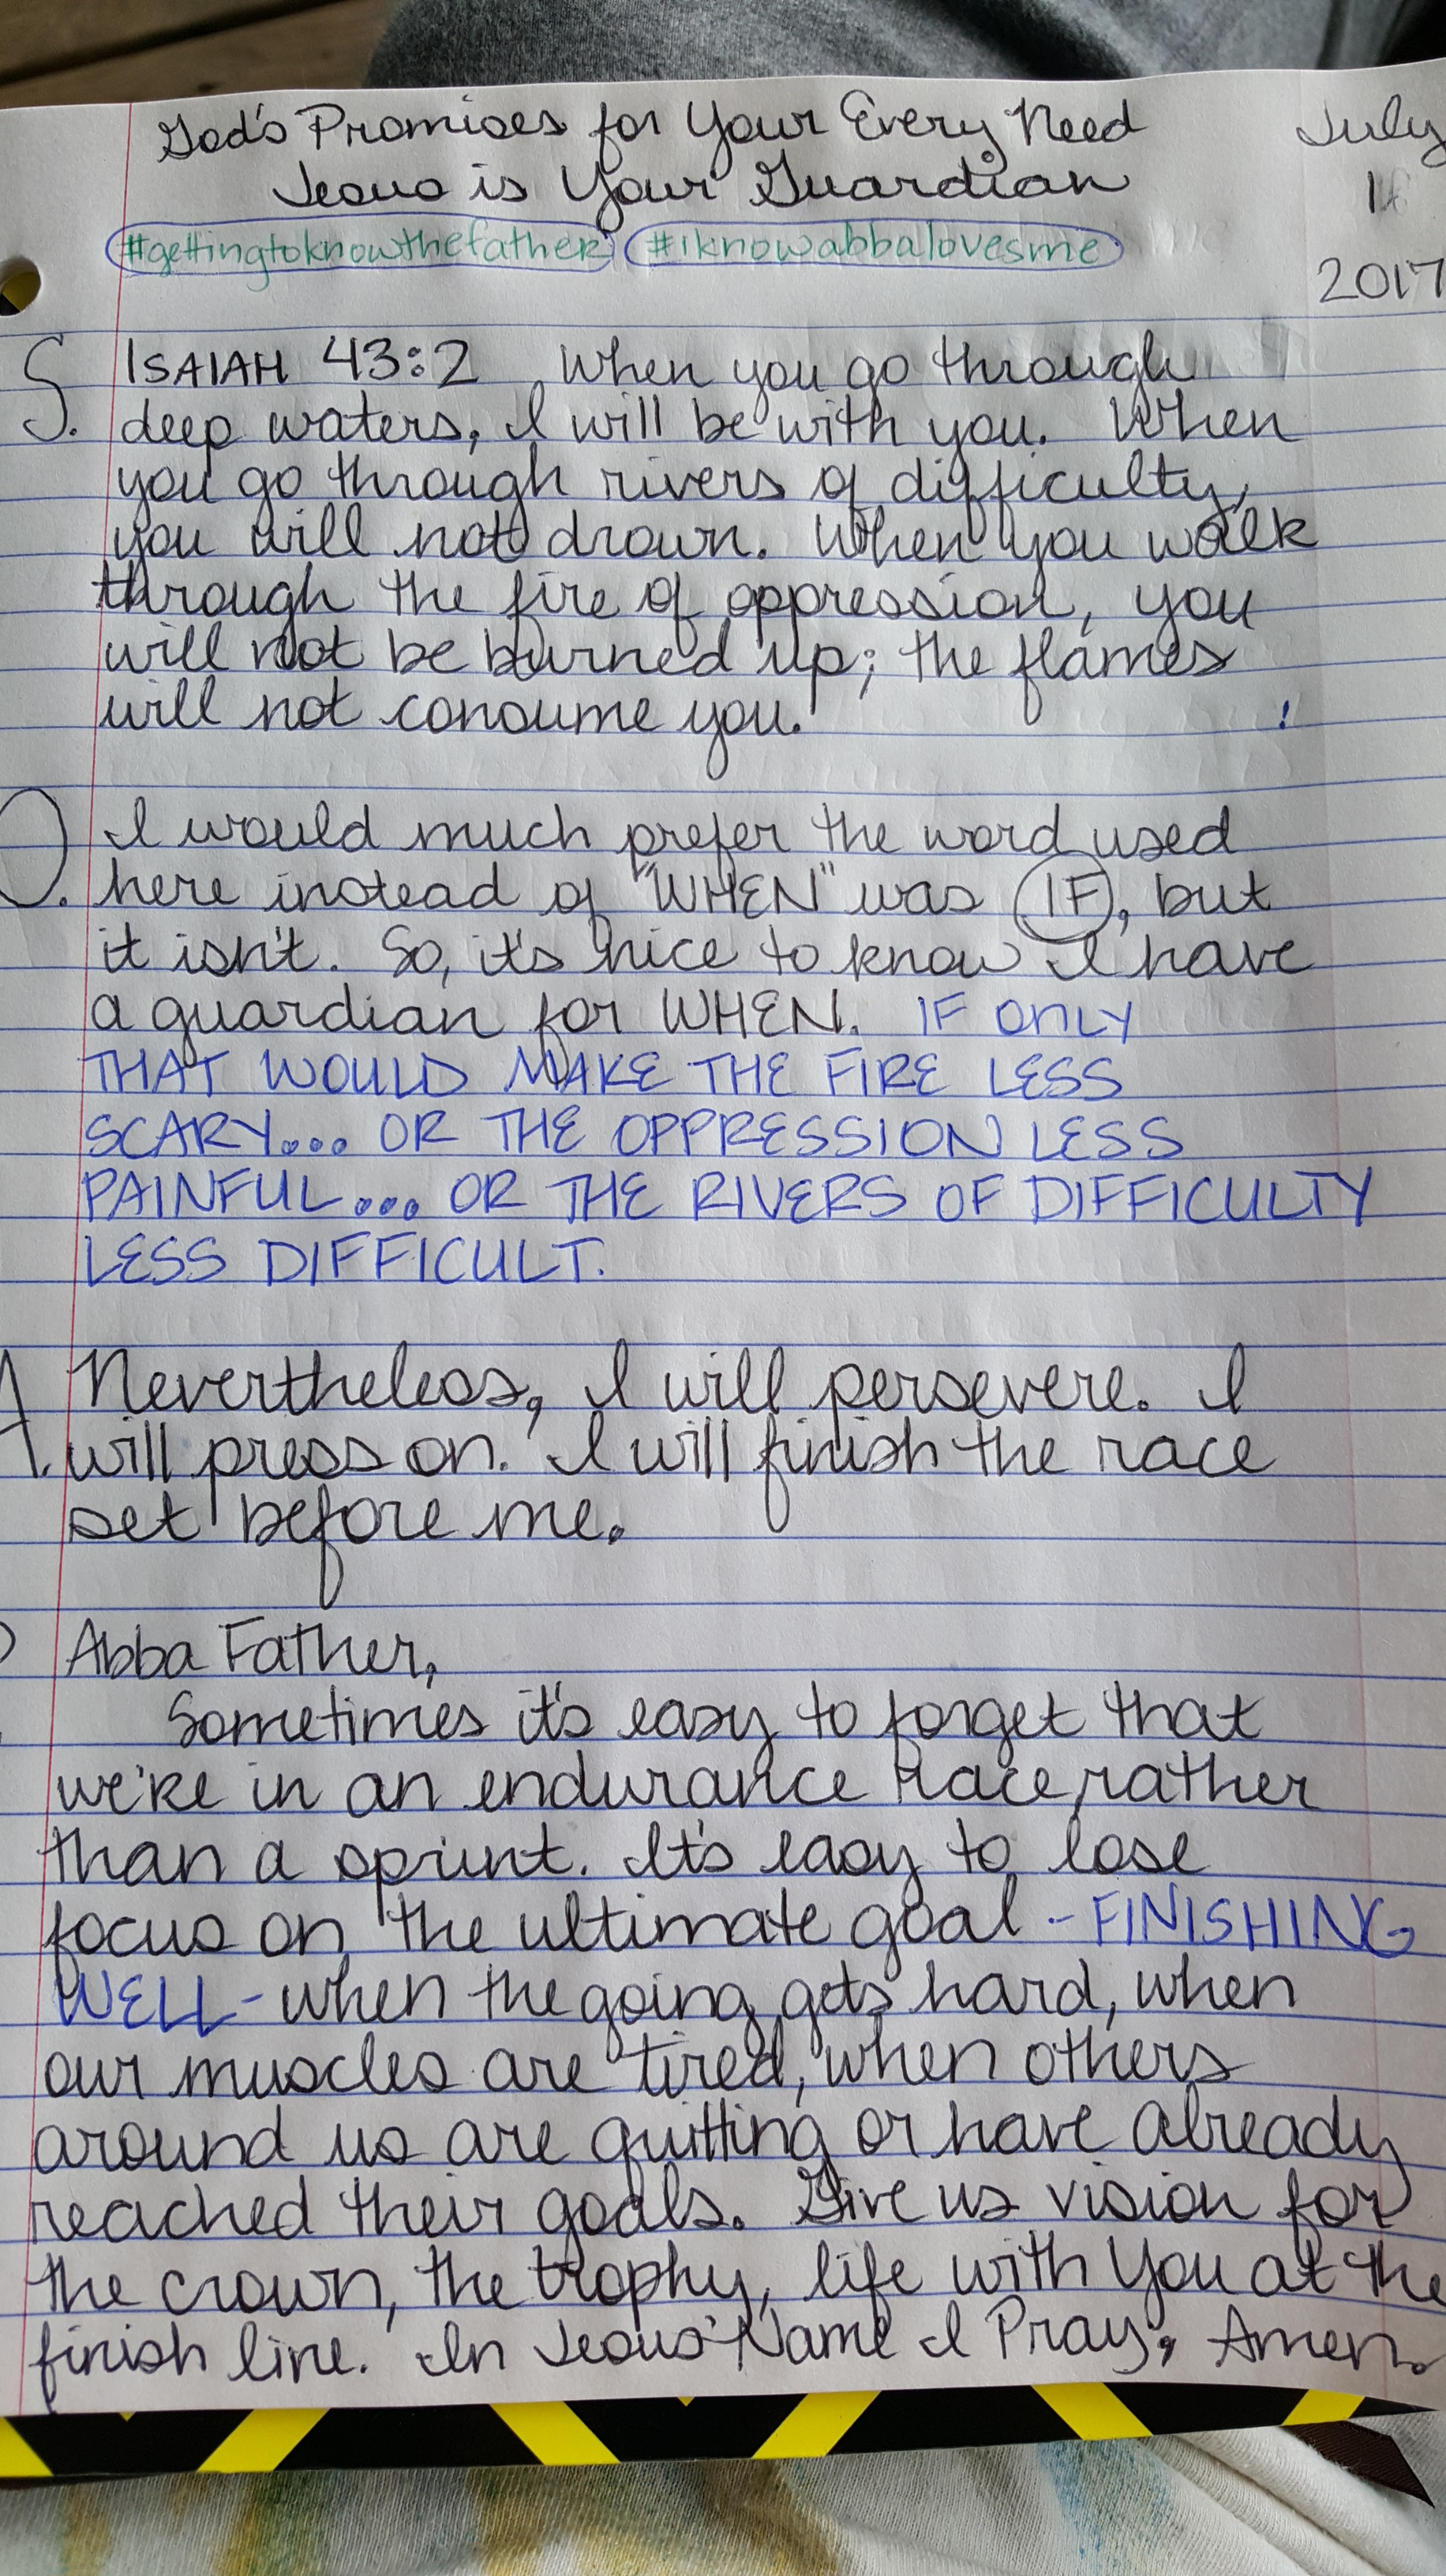 God's Promises for Your Every Need
Jesus is Your Guardian
July
2017
#gettingtoknowthefather #iknowabbalovesme
S. ISAIAH 43:2 When you go through
deep waters, I will be with you. When
you go through rivers of difficulty,
you will not drown. When you walk
through the fire of oppression, you
will not be burned up; the flames
will not consume you. !
O. I would much prefer the word used
here instead of "WHEN" was IF, but
it isn't. So, it's nice to know I have
a guardian for WHEN. IF ONLY
THAT WOULD MAKE THE FIRE LESS
SCARY... OR THE OPPRESSION LESS
PAINFUL... OR THE RIVERS OF DIFFICULTY
LESS DIFFICULT.
A. Nevertheless, I will persevere. I
will press on. I will finish the race
set before me.
Abba Father,
Sometimes it's easy to forget that
we're in an endurance race, rather
than a sprint. It's easy to lose
focus on the ultimate goal - FINISHING
WELL - when the going gets hard, when
our muscles are tired, when others
around us are quitting or have already
reached their goals. Give us vision for
the crown, the trophy, life with You at the
finish line. In Jesus' Name I Pray, Amen.